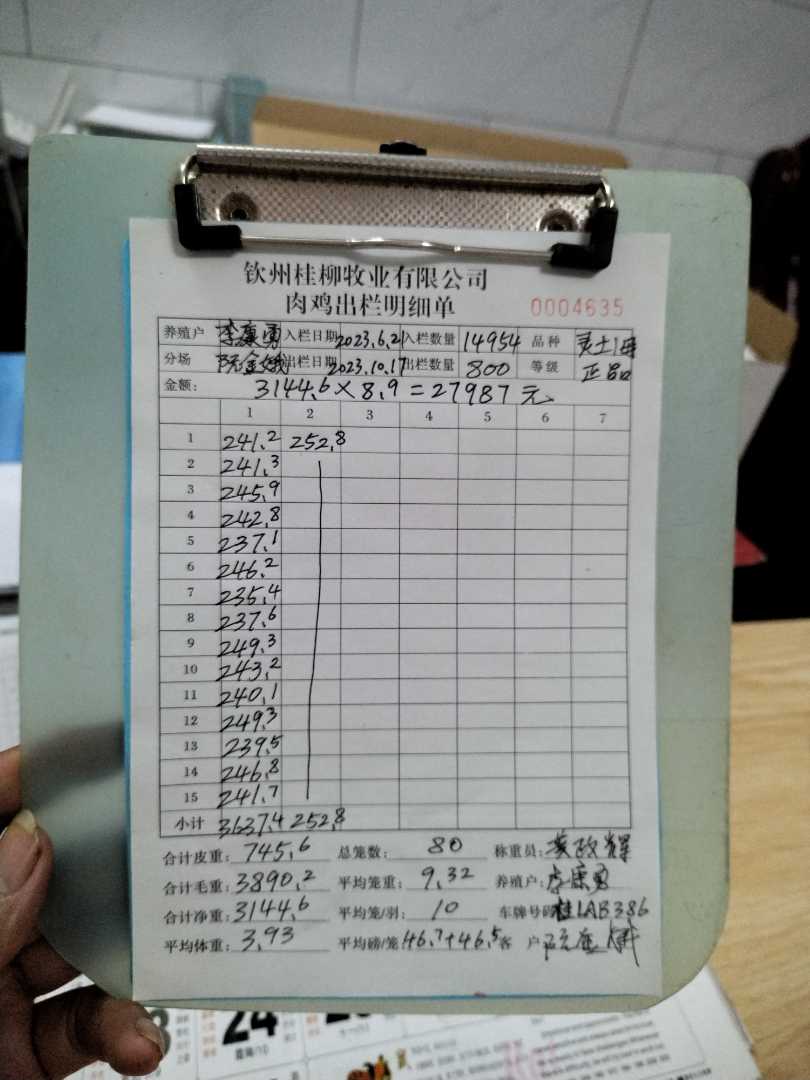 钦州桂柳牧业有限公司
肉鸡出栏明细单 0004635
养殖户 李康勇 入栏日期 2023.6.21 入栏数量 14954 品种 灵土1号
分场 阮金娥 出栏日期 2023.10.17 出栏数量 800 等级 正品
金额: 3144.6×8.9=27987元
1 2 3 4 5 6 7
1 241.2 252.8
2 241.3
3 245.9
4 242.8
5 237.1
6 246.2
7 235.4
8 237.6
9 249.3
10 243.2
11 240.1
12 249.3
13 239.5
14 246.8
15 241.7
小计 3637.4 252.8
合计皮重: 745.6 总笼数: 80 称重员: 辉
合计毛重: 3890.2 平均笼重: 9.32 养殖户: 李康勇
合计净重: 3144.6 平均笼/羽: 10 车牌号码 桂LAB386
平均体重: 3.93 平均磅/笼 46.7+46.5 客户
24